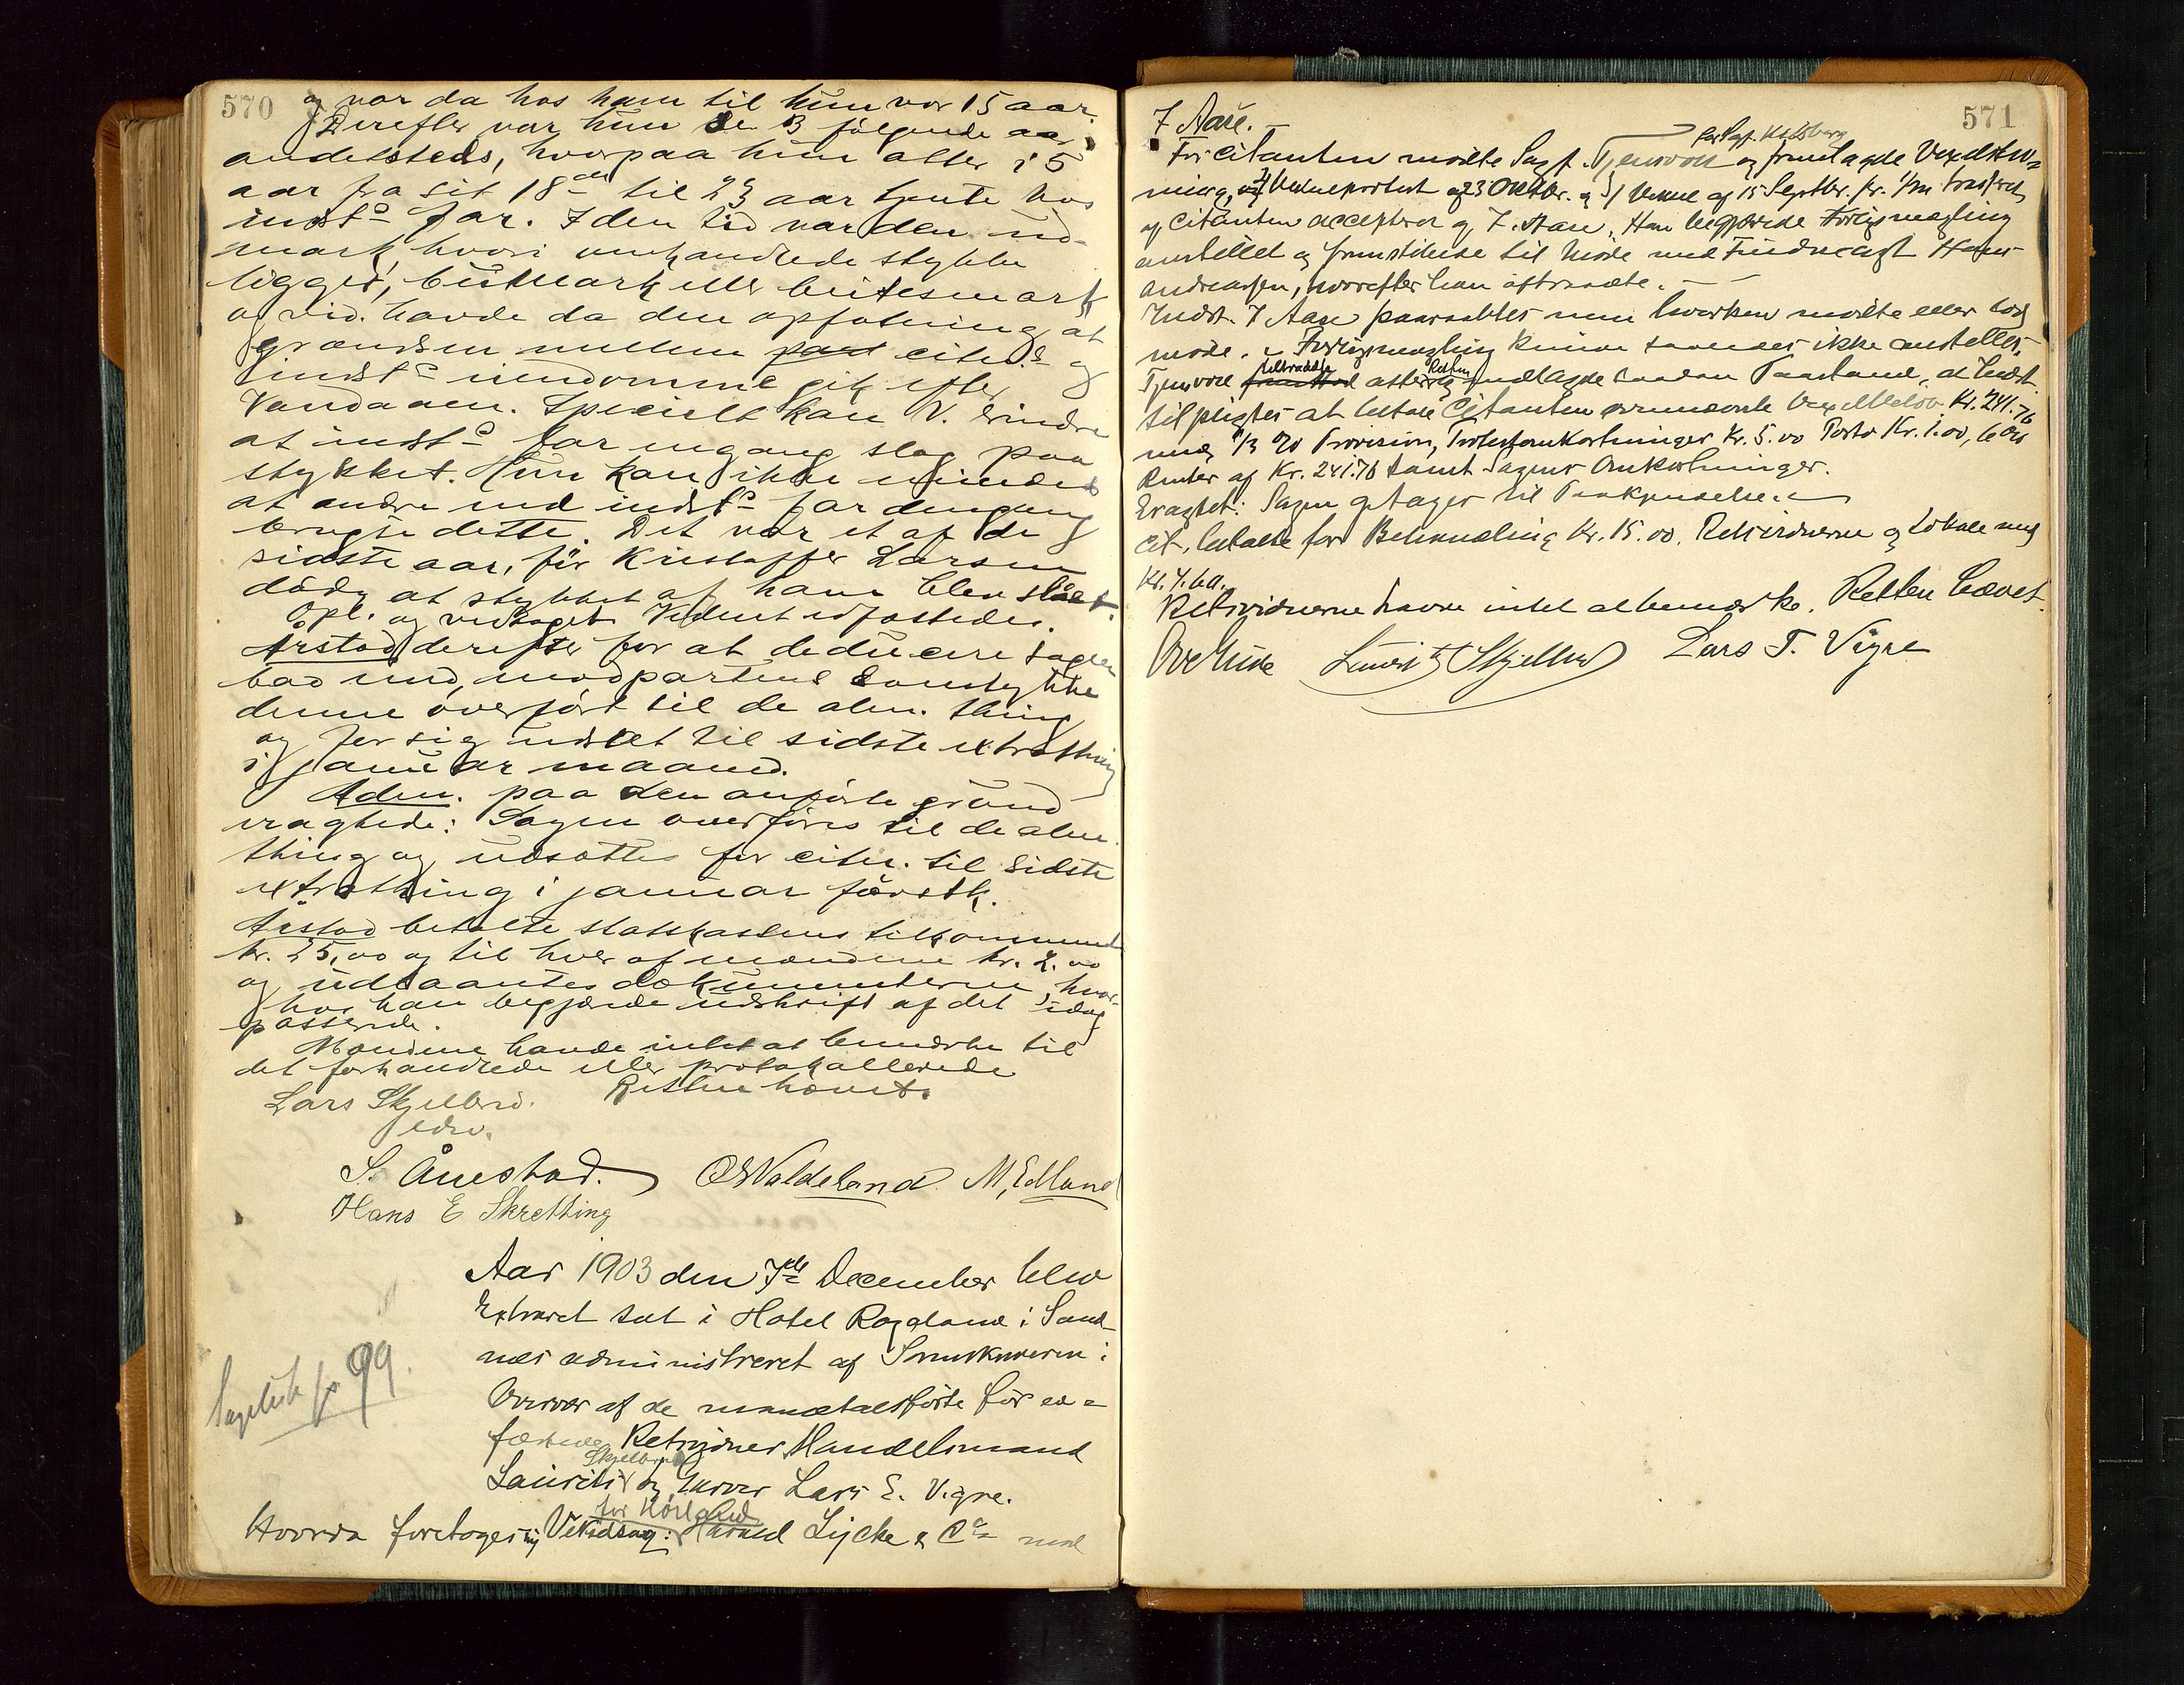 570
og var da hos ham til hun var 15 aar.
Derefter var hun de 3 følgende aar
andetsteds, hvorpaa hun atter i 5
aar fra sit 18de til 23 aar tjente hos
indst.s far. I den tid var den ud-
mark, hvori omhandlede stykke
ligger, bumark eller beitesmark
og vid. havde da den opfatning, at
grændsen mellem citn.s og
indst.s eiendomme gik efter
Vandaaen. Specielt kan V. erindre
at indst.s far engang slog paa
stykket. Hun kan ikke mindes
at andre end indst.s far dengang
brugte dette. Det var et af de
sidste aar, før Kristoffer Larsen
døde at stykket af ham blev slaaet.
Opl. og vedtaget. Vidnet edfæstedes.
Årstad derefter for at deducere sagen
bad med modpartens samtykke
denne overført til de alm. thing
og for sig udsat til sidste extrathing
i januar maaned.
Adm. paa den anførte grund
eragtede: Sagen overføres til de alm.
thing og udsættes for citn. til sidste
extrathing i januar førstk.
Årstad betalte statskassens tilkommende
kr. 25,00 og til hver af mændene kr. 2.00
og udlaantes dokumenterne, hvor-
hos han begjærede udskrift af det idag
passerede.
Mændene havde intet at bemærke til
det forhandlede eller protokollerede
Retten hævet.
Lars Skjelbred.
edsv.
S. Ånestad. O S Valdeland M, Edland
Hans E Skretting
Aar 1903 den 7de December blev
Extraret sat i Hotel Rogaland i Sand-
nes administreret af Sorenskriveren i
Overvær af de mandtalsførte før ed-
fæstede Retsvidner Handelsmand
Skjelbred
Lauritz og Lars E. Vigre.
Sagliste p 99.
for Hørland
Hvorda foretoges i Vexelsag: Harald Lycke & Co mod
571
T Aase.
for Sagf. Kolsberg
For Citanten mødte Sagf. Tjensvoll og fremlagde Vexelstev-
ning, Vexelprotest af 23 Oktbr. og Vexel af 15 Septbr. trasseret
af Citanten accepteret af T. Aase. Han begjærede Forligsmægling
anstillet og fremstillede til Møde med Fuldmagt Hans
Andreassen, hvorefter han aftraadte. —
Indst. T Aase paaraabtes men hverken mødte eller lod
møde. Forligsmægling kunne saaledes ikke anstilles.
tiltraadte Retten
Tjensvoll atter nedlagde saadan Paastand, at Indst.
tilpligtes at betale Citanten ommeldte Vexelbeløb Kr. 241.76
med 1/3 % Provision, Protestomkostninger Kr. 5.00 Porto Kr. 1.00, 6 %
Renter af Kr. 241.76 samt Sagens Omkostninger.
Eragtet: Sagen optages til Paakjendelse.
Cit. betalte for Behandling Kr. 15.00. Retsvidnerne og Lokale med
Kr. 4.60.
Retsvidnerne havde intet at bemærke. Retten hævet.
Ove Lauritz Skjelbred Lars T. Vigre